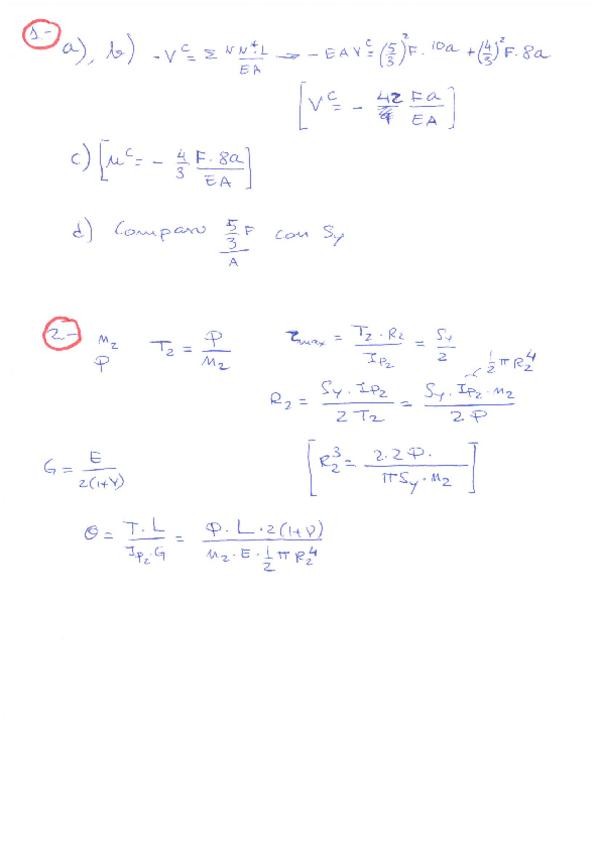 1-
a), b) -V^C = Σ N N* L / EA → - EAV^C = (5/3)^2 F · 10a + (4/3)^2 F · 8a
[V^C = - 42 Fa / EA]
c) [u^C = - 4/3 F·8a / EA]
d) Comparo 5/3 F / A con Sy
2-
n2
P
T2 = P / n2
τmax = T2 · R2 / IP2 = Sy / 2
1/2 π R2^4
R2 = Sy · IP2 / 2 T2 = Sy · IP2 · n2 / 2 P
G = E / 2(1+ν)
[R2^3 = 2·2P. / π Sy · n2]
θ = T·L / IP2·G = P·L·2(1+ν) / n2·E·1/2 π R2^4